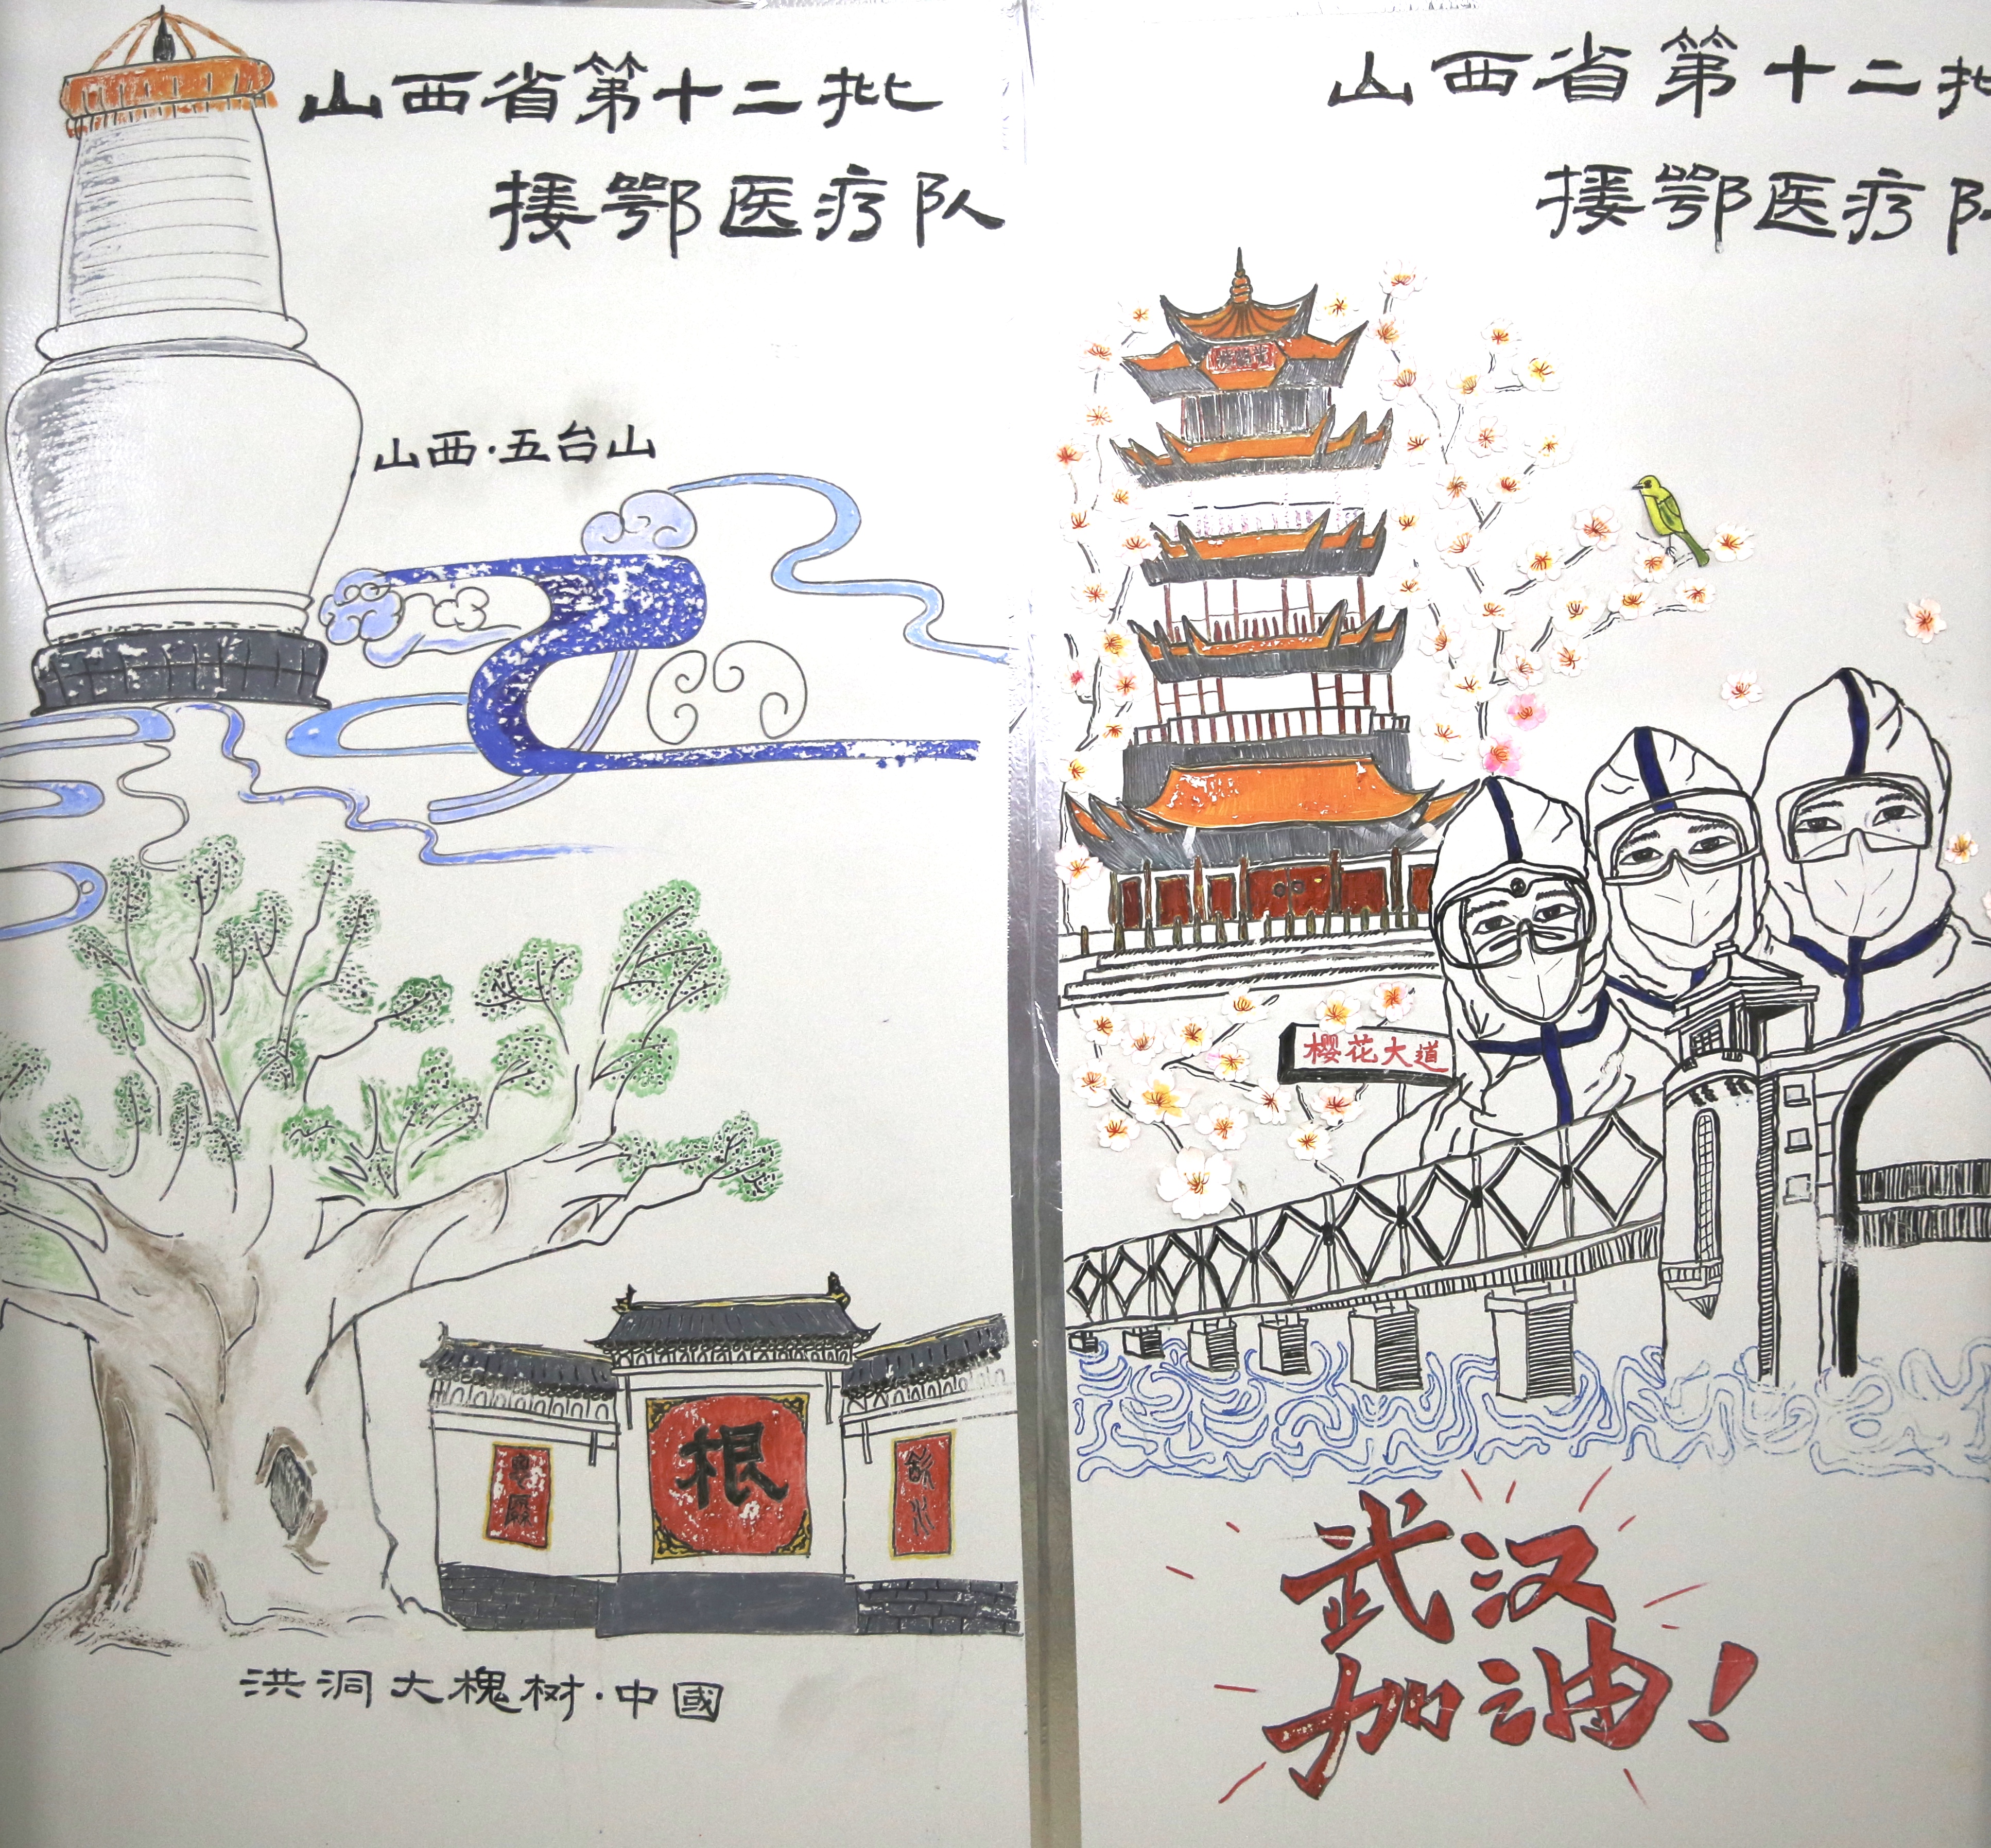 山西省第十二批
援鄂医疗队
山西·五台山
根
洪洞大槐树·中國
山西省第十二批
援鄂医疗队
樱花大道
武汉
加油!